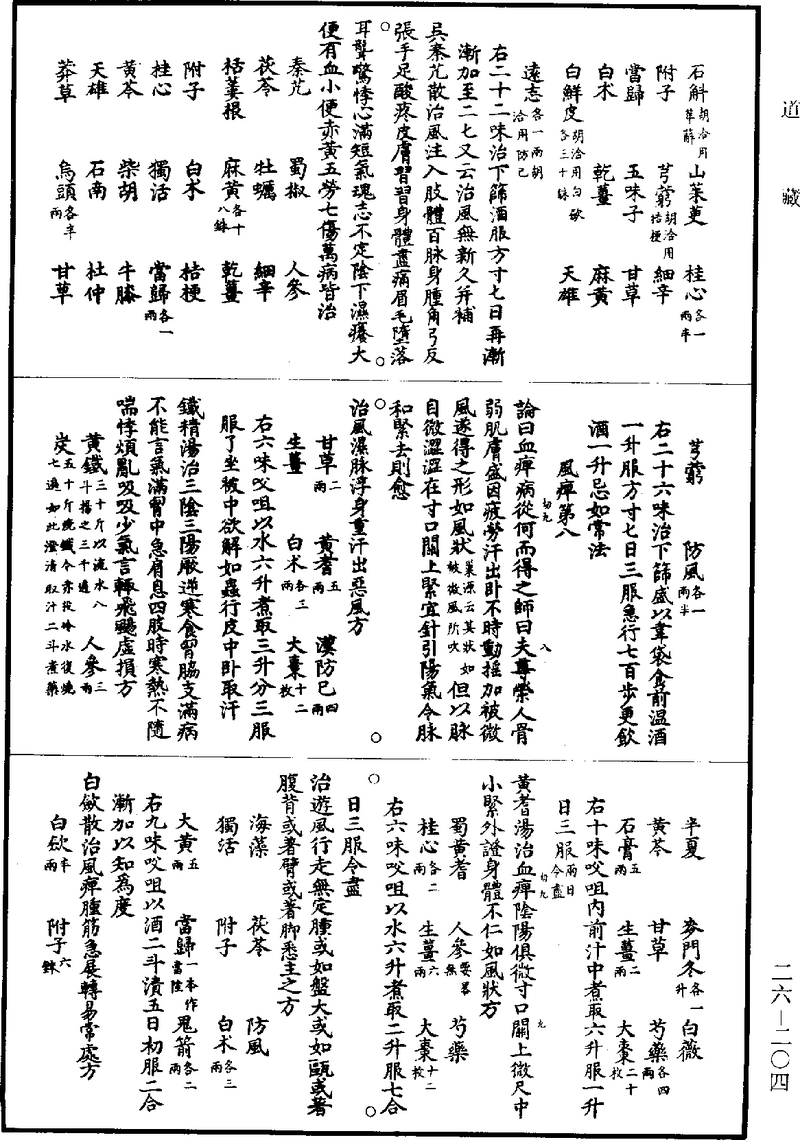 道藏
石斛胡洽用萆薢 山茱萸 桂心各一兩半
附子 芎藭胡洽用桔梗 細辛
當歸 五味子 甘草
白朮 乾薑 麻黃
白鮮皮胡洽用白斂各三十銖 天雄
遠志各一兩胡洽用防己
右二十二味治下篩酒服方寸匕日再漸
漸加至二匕又云治風無新久并補
吳秦艽散治風注入肢體百脉身腫角弓反
張手足酸疼皮膚習習身體盡痛眉毛墮落
耳聾驚悸心滿短氣魂志不定陰下濕癢大
便有血小便赤黃五勞七傷萬病皆治
秦艽 蜀椒 人參
茯苓 牡蠣 細辛
栝蔞根 麻黃各十八銖 乾薑
附子 白朮 桔梗
桂心 獨活 當歸各一兩
黃芩 柴胡 牛膝
天雄 石南 杜仲
莽草 烏頭各半兩 甘草
芎藭 防風各一兩半
右二十六味治下篩盛以韋袋食前溫酒
一升服方寸匕日三服急行七百步更飲
酒一升忌如常法
風痺第八
論曰血痺病從何而得之師曰夫尊榮人骨
弱肌膚盛因疲勞汗出臥不時動搖加被微
風遂得之形如風狀巢源云其狀如被微風所吹但以脉
自微澀澀在寸口關上緊宜針引陽氣令脉
和緊去則愈
治風濕脉浮身重汗出惡風方
甘草二兩 黃耆五兩 漢防己四兩
生薑 白朮各三兩 大棗十二枚
右六味㕮咀以水六升煮取三升分三服
服了坐被中欲解如蟲行皮中臥取汗
鐵精湯治三陰三陽厥逆寒食胷脇支滿病
不能言氣滿胷中急肩息四肢時寒熱不隨
喘悸煩亂吸吸少氣言輒飛颺虛損方
黃鐵三十斤以流水八斗揚之三千遍 人參三兩
炭五十斤燒鐵令赤投冷水復燒七遍如此澄清取汁二斗煮藥
半夏 麥門冬各一升 白薇
黃芩 甘草 芍藥各四兩
石膏五兩 生薑二兩 大棗二十枚
右十味㕮咀內前汁中煮取六升服一升
日三服兩日令盡
黃耆湯治血痺陰陽俱微寸口關上微尺中
小緊外證身體不仁如風狀方
蜀黃耆 人參要畧無 芍藥
桂心各二兩 生薑六兩 大棗十二枚
右六味㕮咀以水六升煮取二升服七合
日三服令盡
治遊風行走無定腫或如盤大或如甌或著
腹背或著臂或著脚悉主之方
海藻 茯苓 防風
獨活 附子 白朮各三兩
大黃五兩 當歸一本作當陸 鬼箭各二兩
右九味㕮咀以酒二斗漬五日初服二合
漸加以知爲度
白斂散治風痺腫筋急展轉易常處方
白斂半兩 附子六銖
二六—二〇四